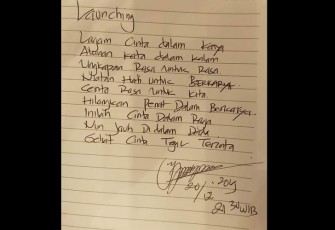 Launching
Lagam Cinta dalam Karya
Alunan Kata dalam Kalam
Ungkapan Rasa Untuk Rasa
Niatan Hati Untuk BERKARYA
Cerita Rasa Untuk Kita
Hilangkan Penat Dalam Berkarya
Inilah Cinta Dalam Raga
Nun Jauh Di dalam Dada
Gelut Cinta Terinta
20/12.2014
21 34 WIB